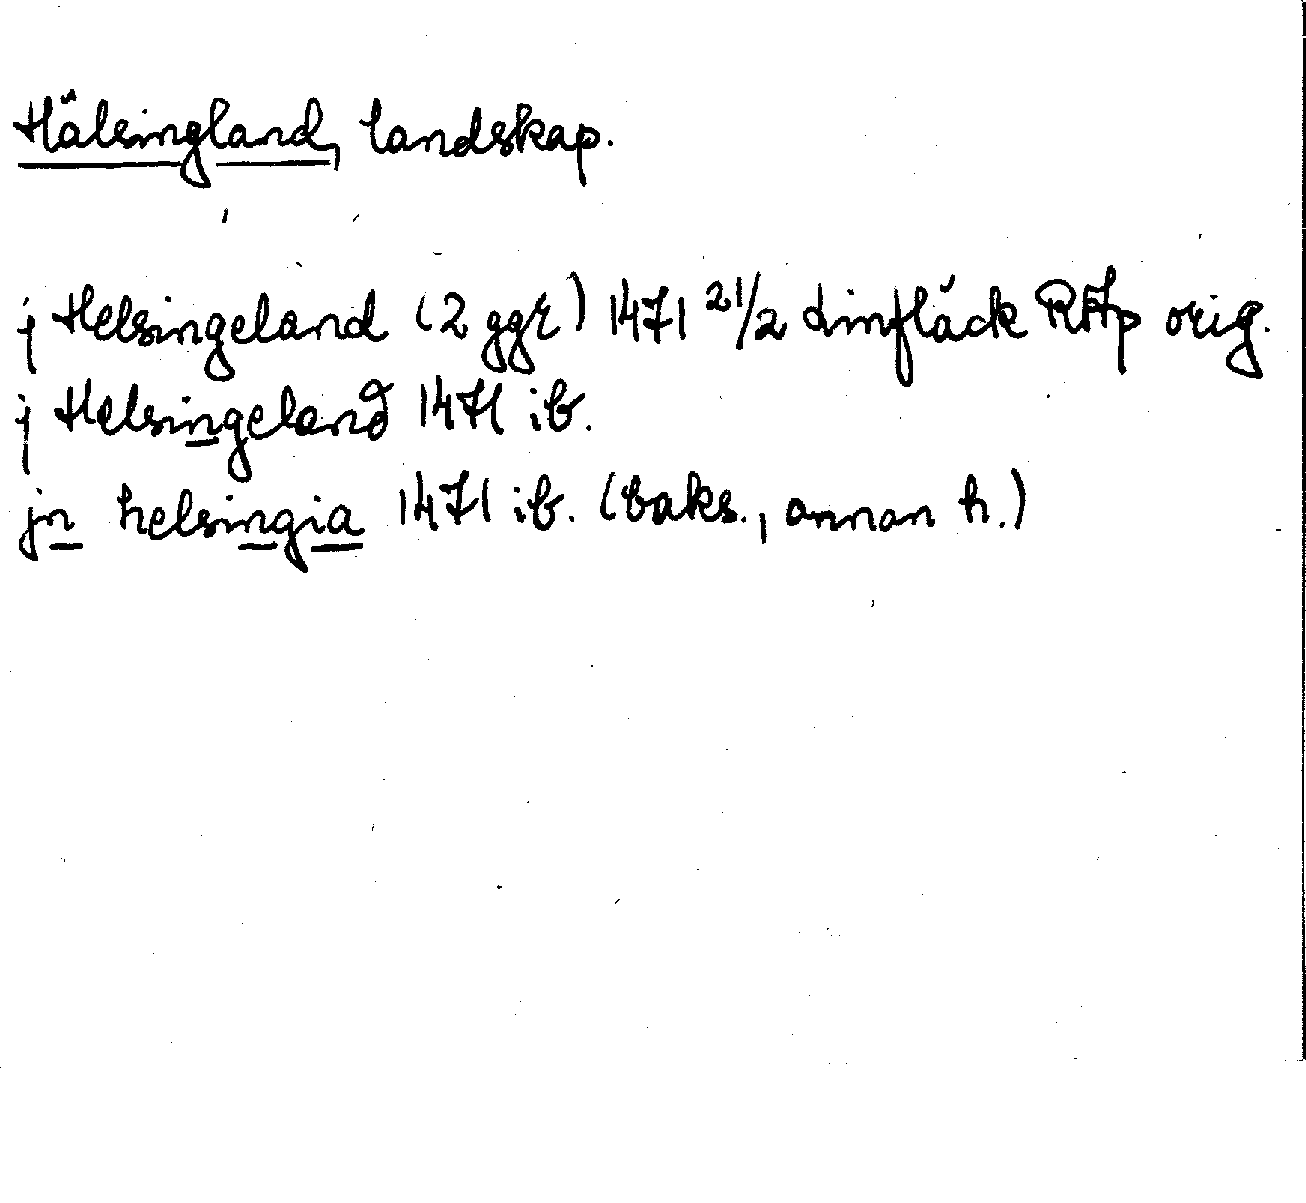 Hälsingland, landskap.
j Helsingeland (2 ggr) 1471 21/2 Limfläck RAp orig.
j Helsingeland 1471 ib.
jn helsingia 1471 ib. (baks., annan h.)